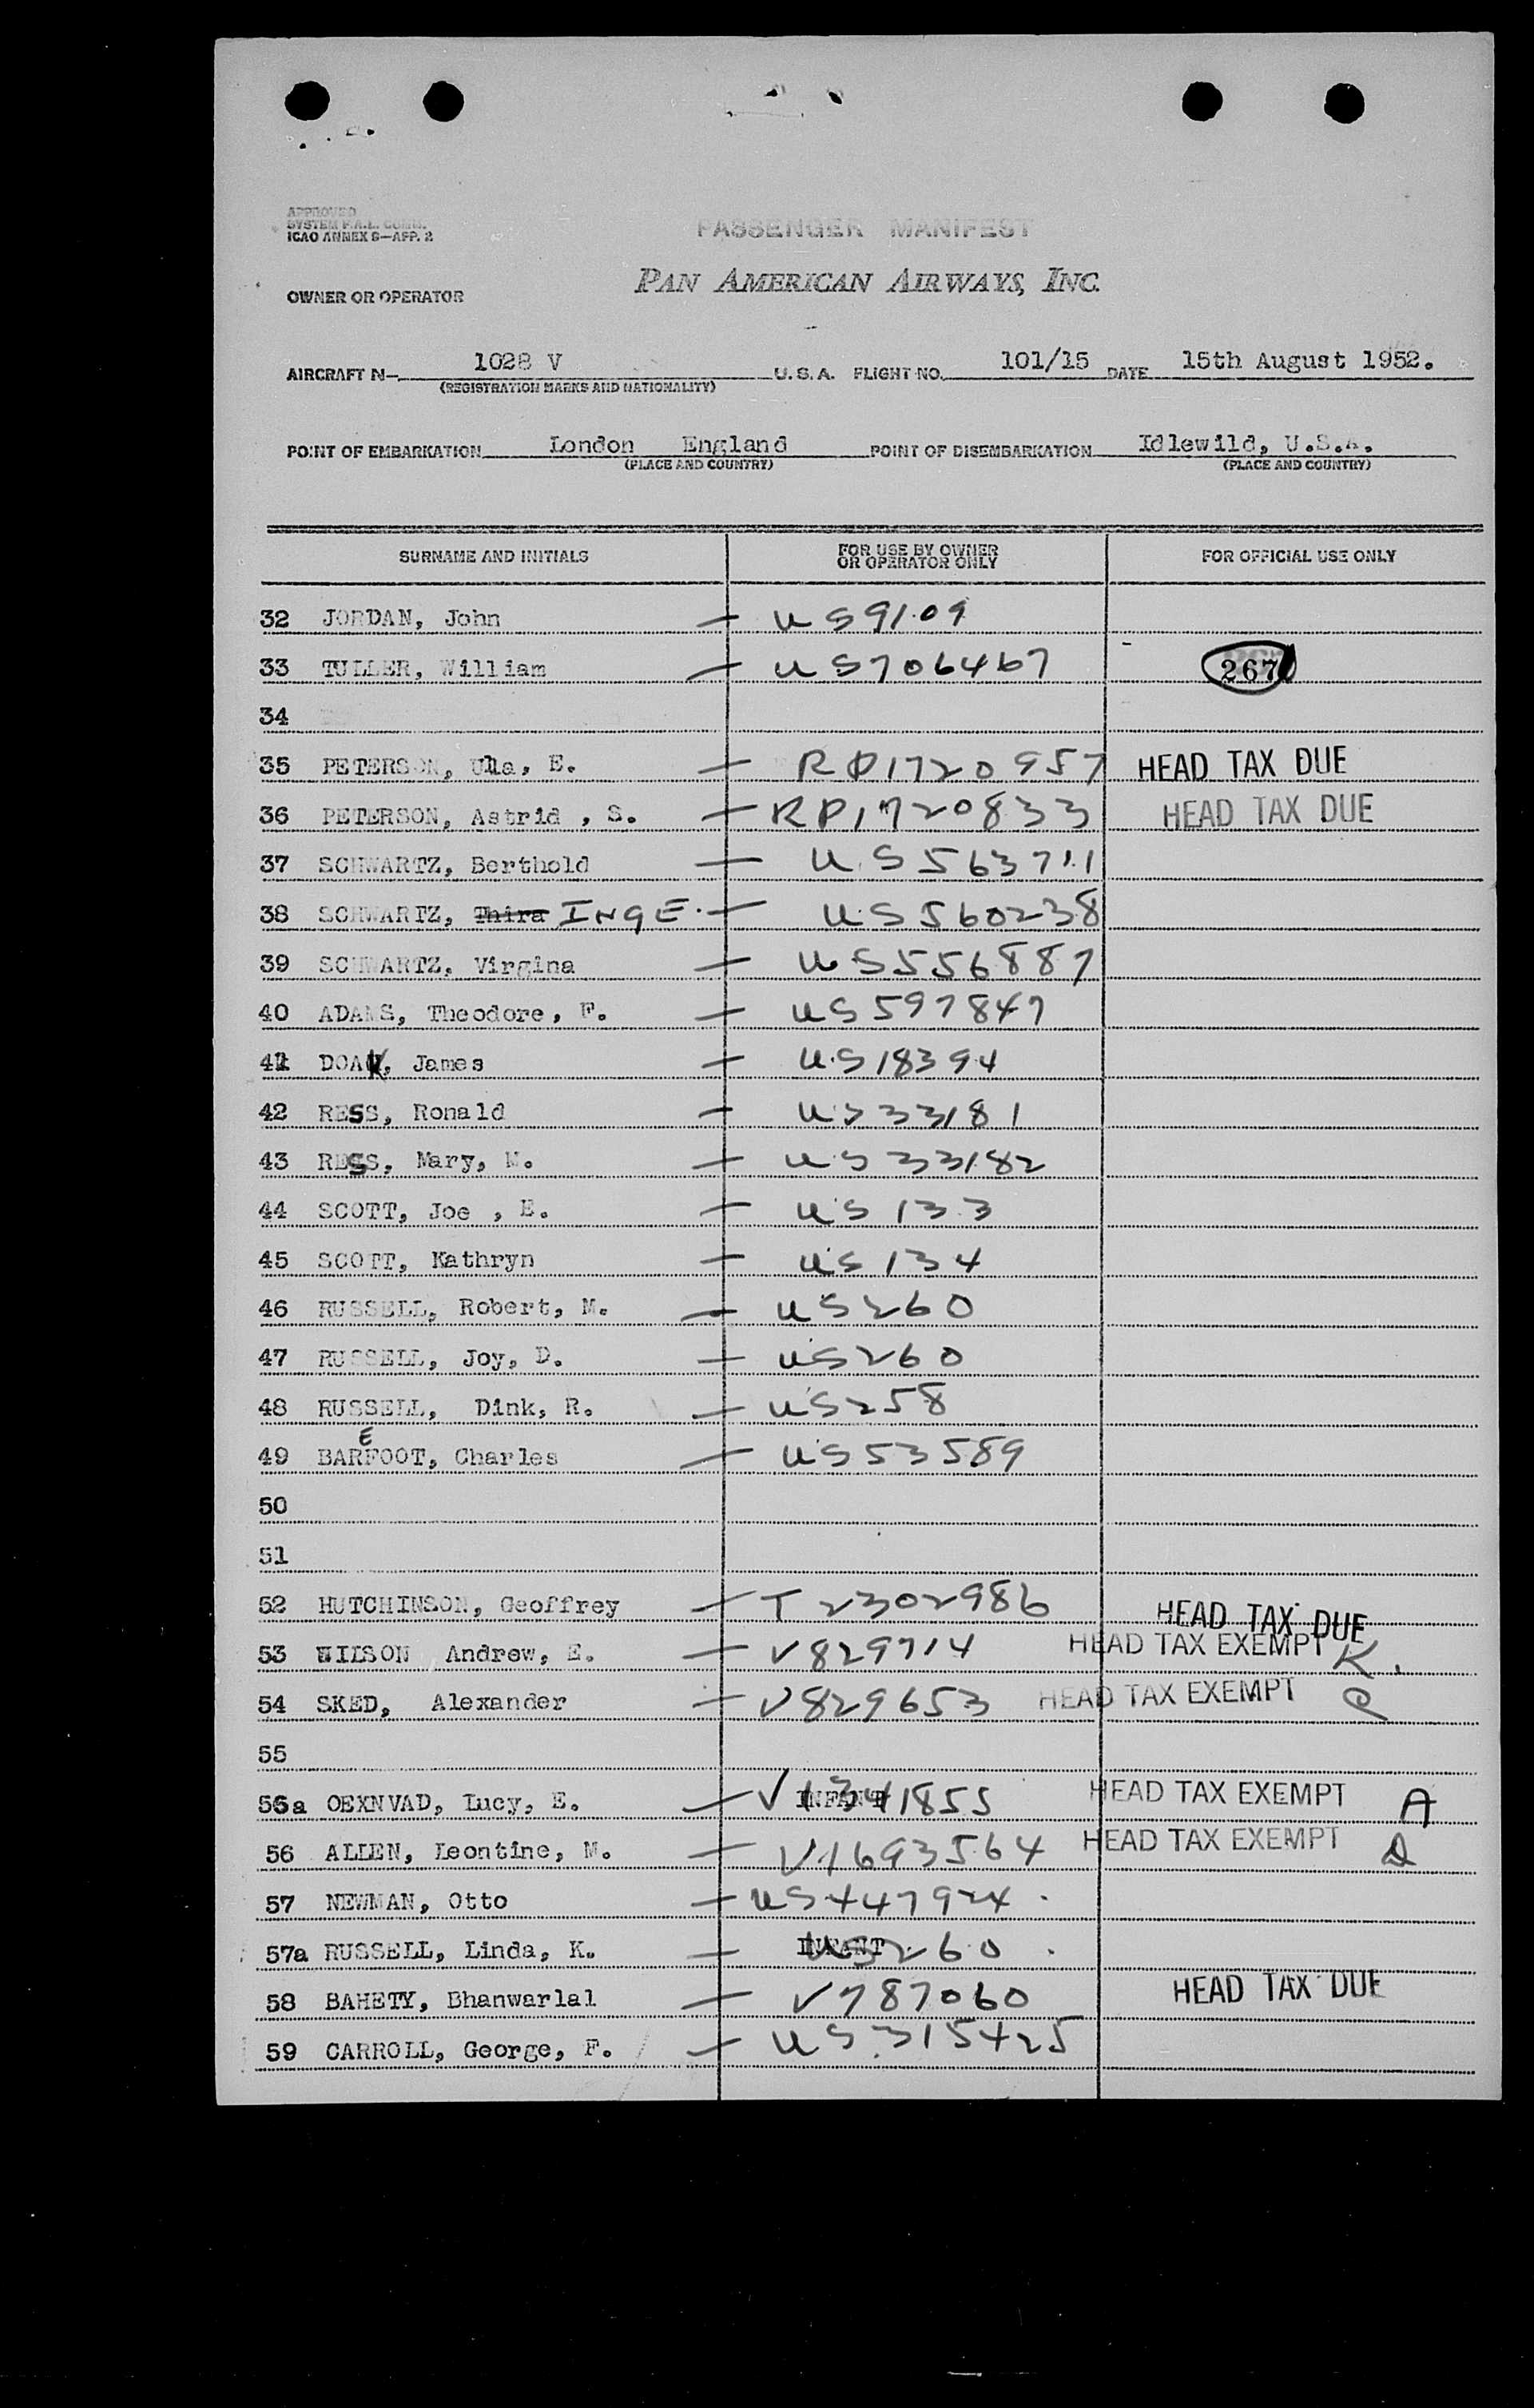 APPROVED
SYSTEM F.A.L. COMM.
ICAO ANNEX 9—APP. 2
PASSENGER MANIFEST
OWNER OR OPERATOR PAN AMERICAN AIRWAYS, INC.
AIRCRAFT N— 1028 V U.S.A. FLIGHT NO. 101/15 DATE 15th August 1952.
(REGISTRATION MARKS AND NATIONALITY)
POINT OF EMBARKATION London England POINT OF DISEMBARKATION Idlewild, U.S.A.
(PLACE AND COUNTRY) (PLACE AND COUNTRY)
SURNAME AND INITIALS FOR USE BY OWNER OR OPERATOR ONLY FOR OFFICIAL USE ONLY
32 JORDAN, John — US 9109
33 TULLER, William — US706467 267
34
35 PETERSON, Ulla, E. — RP1720957 HEAD TAX DUE
36 PETERSON, Astrid , S. — RP1720833 HEAD TAX DUE
37 SCHWARTZ, Berthold — US563711
38 SCHWARTZ, Thira INGE. — US560238
39 SCHWARTZ, Virgina — US556887
40 ADAMS, Theodore, F. — US597847
41 DOAK, James — US18394
42 RESS, Ronald — US33181
43 RESS, Mary, M. — US33182
44 SCOTT, Joe , E. — US 133
45 SCOTT, Kathryn — US 134
46 RUSSELL, Robert, M. — US260
47 RUSSELL, Joy, D. — US260
48 RUSSELL, Dink, R. — US258
49 BAREFOOT, Charles — US53589
50
51
52 HUTCHINSON, Geoffrey — T2302986 HEAD TAX DUE
53 WILSON Andrew, E. — V829714 HEAD TAX EXEMPT K.
54 SKED, Alexander — V829653 HEAD TAX EXEMPT
55
56a OEXNVAD, Lucy, E. — INFANT V1341855 HEAD TAX EXEMPT A
56 ALLEN, Leontine, M. — V1693564 HEAD TAX EXEMPT
57 NEWMAN, Otto — US447924.
57a RUSSELL, Linda, K. — INFANT US260.
58 BAHETY, Bhanwarlal — V787060 HEAD TAX DUE
59 CARROLL, George, F. — US315425